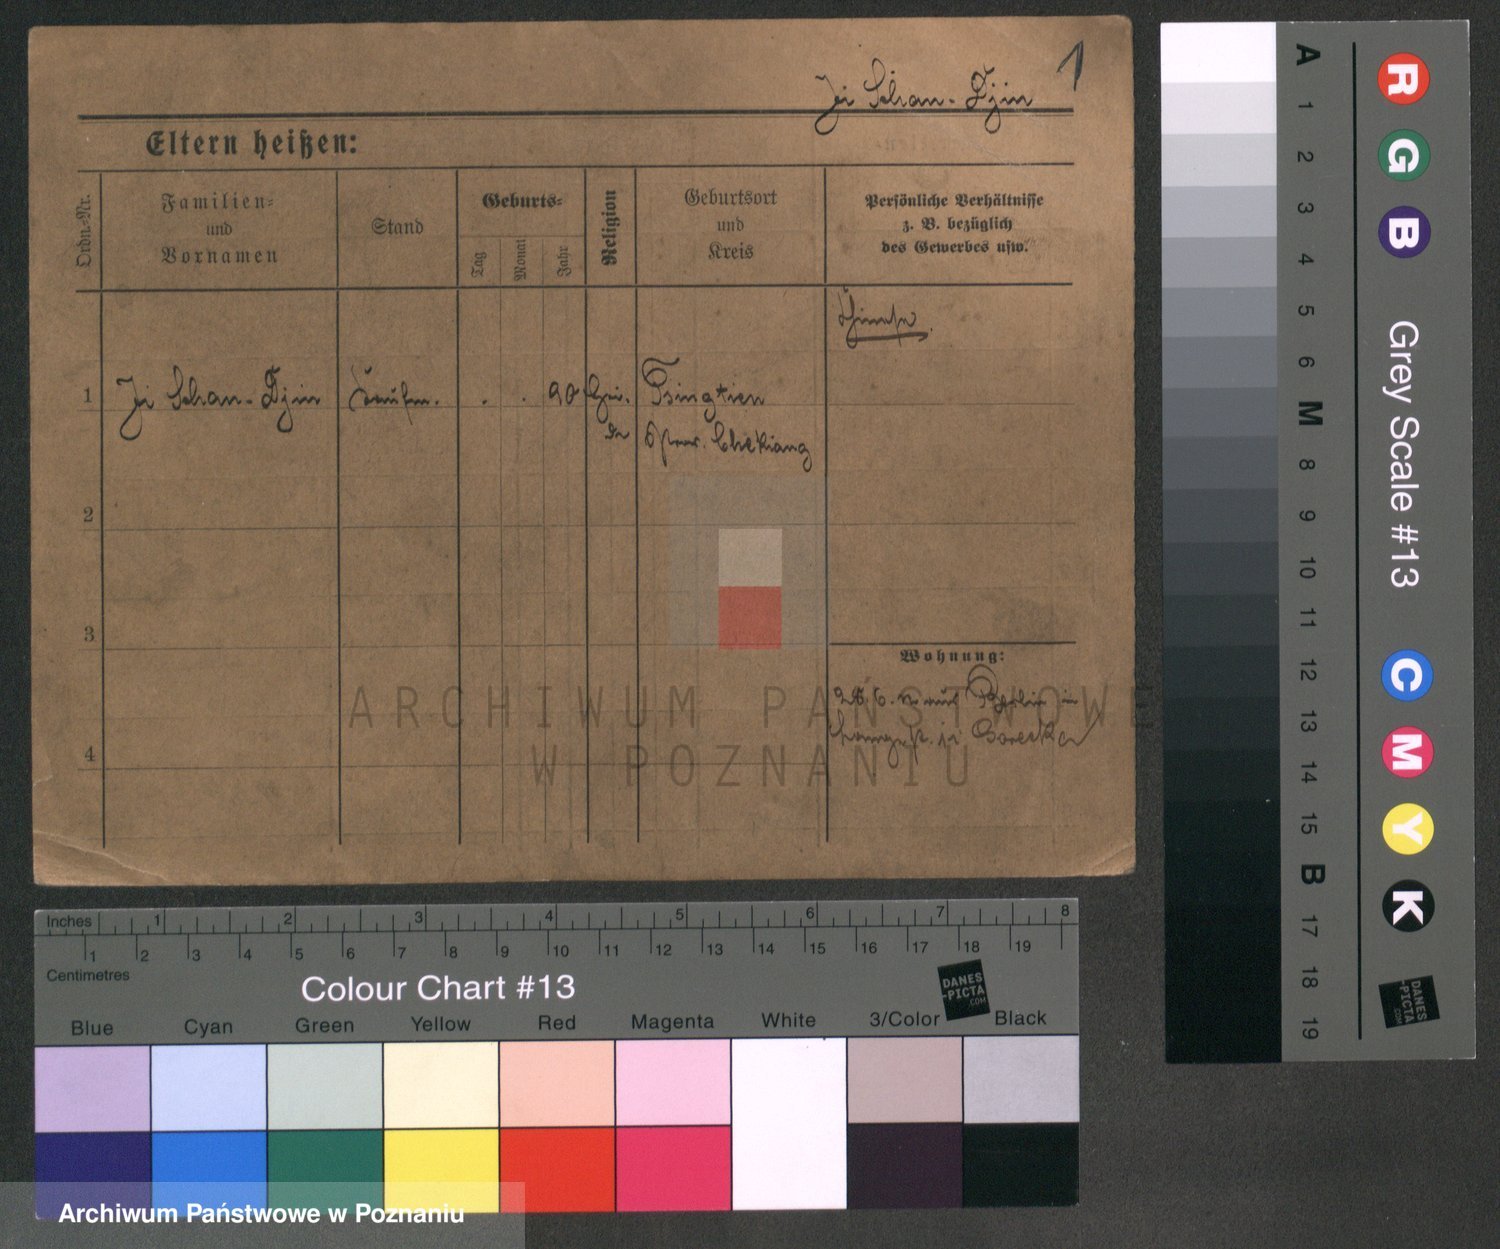 1
Ji Schan-Djin
Eltern heißen:
Ordn.-Nr.
Familien-
und
Vornamen
Stand
Geburts-
Tag
Monat
Jahr
Religion
Geburtsort
und
Kreis
Persönliche Verhältnisse
z. B. bezüglich
des Gewerbes usw.
Chinese.
1 Ji Schan-Djin Kaufm. . . 90 Hei- Tsingtien
de Prov. Chekiang
2
3
4
Wohnung:
ARCHIWUM PAŃSTWOWE
W POZNANIU
Inches 1 2 3 4 5 6 7 8
1 2 3 4 5 6 7 8 9 10 11 12 13 14 15 16 17 18 19
Centimetres
Colour Chart #13
DANES
-PICTA
.COM
Blue Cyan Green Yellow Red Magenta White 3/Color Black
Archiwum Państwowe w Poznaniu
A 1 2 3 4 5 6 M 8 9 10 11 12 13 14 15 B 17 18 19
R G B
Grey Scale #13
C M Y K
DANES
-PICTA
.COM